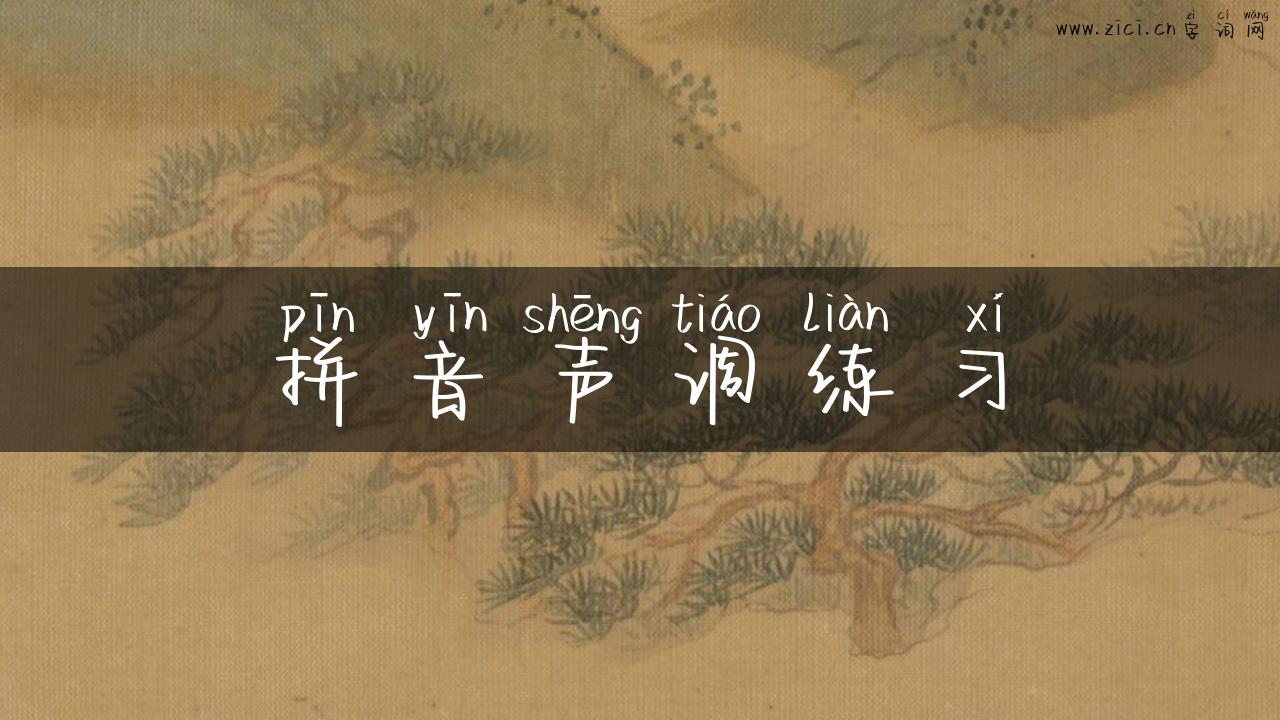 zì cí wǎng
www.zīcī.cn 字词网
pīn yīn shēng tiáo liàn xí
拼音声调练习